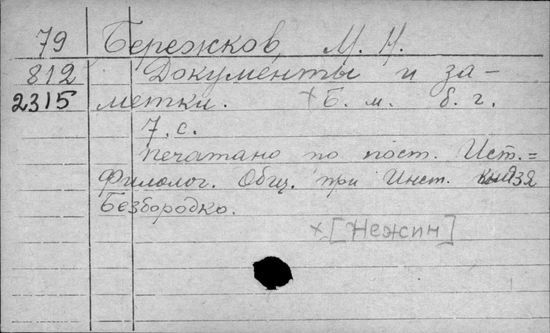 79 Бережков, М. Н.
812 Документы и за-
2315 метки. +Б. м. б. г.
7. с.
печатано по пост. Ист.=
Филолог. Общ. при Инст. князя
Безбородко.
+[Нежин]